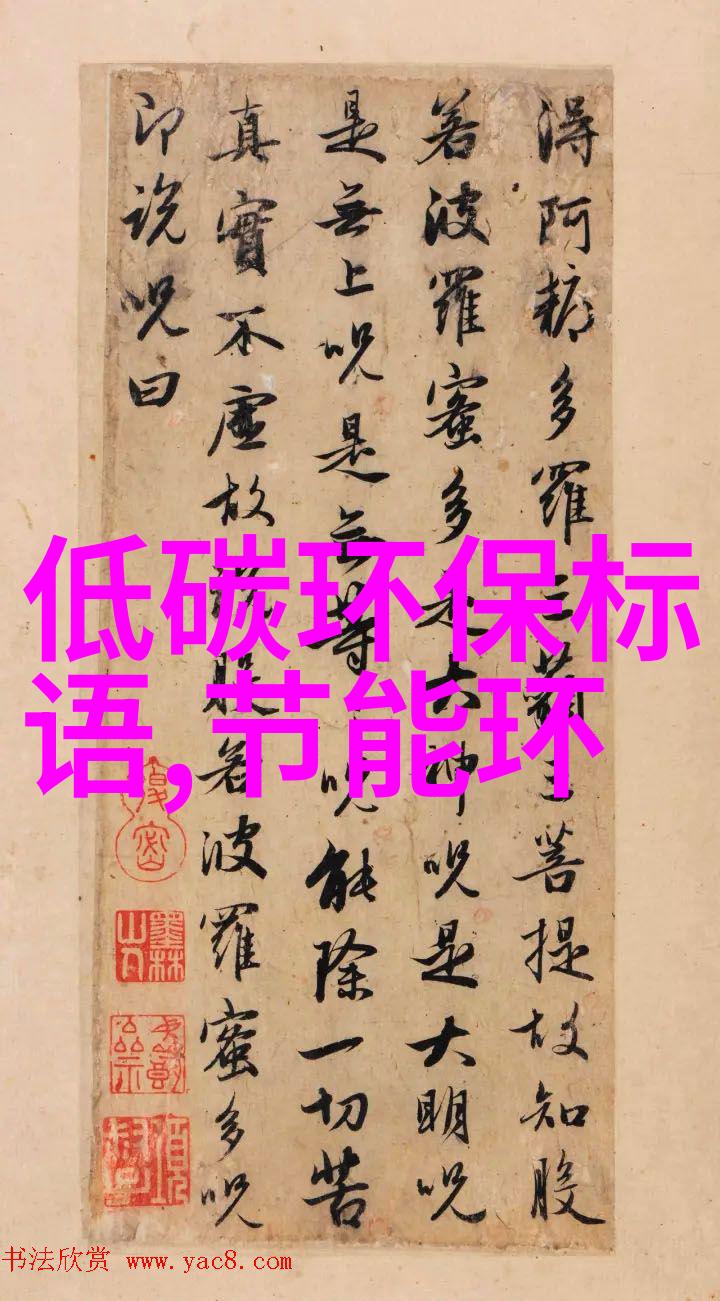 得阿耨多羅三藐三菩提故知般
若波羅蜜多是大神呪是大明呪
是無上呪是无等〻呪能除一切苦
真實不虛故說般若波羅蜜多呪
即說呪曰
低碳环保标
语,节能环
墨林山人
书法欣赏 www.yac8.com